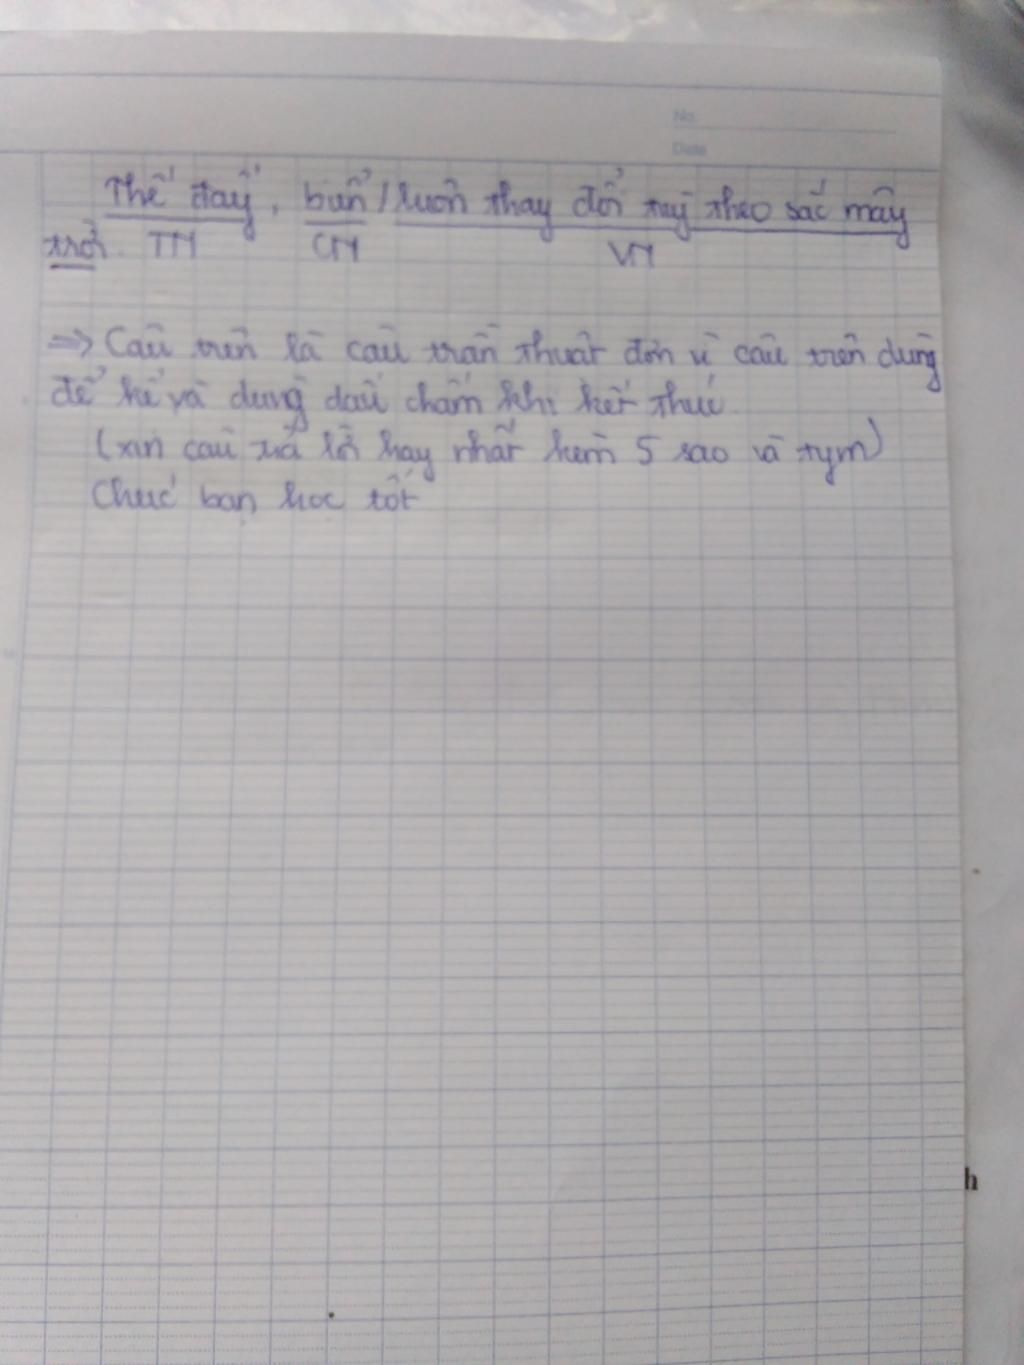 No.
Date
Thế đấy, biển / luôn thay đổi tuỳ theo sắc mây
trời. TN CN VN
=> Câu trên là câu trần thuật đơn vì câu trên dùng
để kể và dùng dấu chấm khi kết thúc.
(xin câu trả lời hay nhất kèm 5 sao và tym)
Chúc bạn học tốt
h